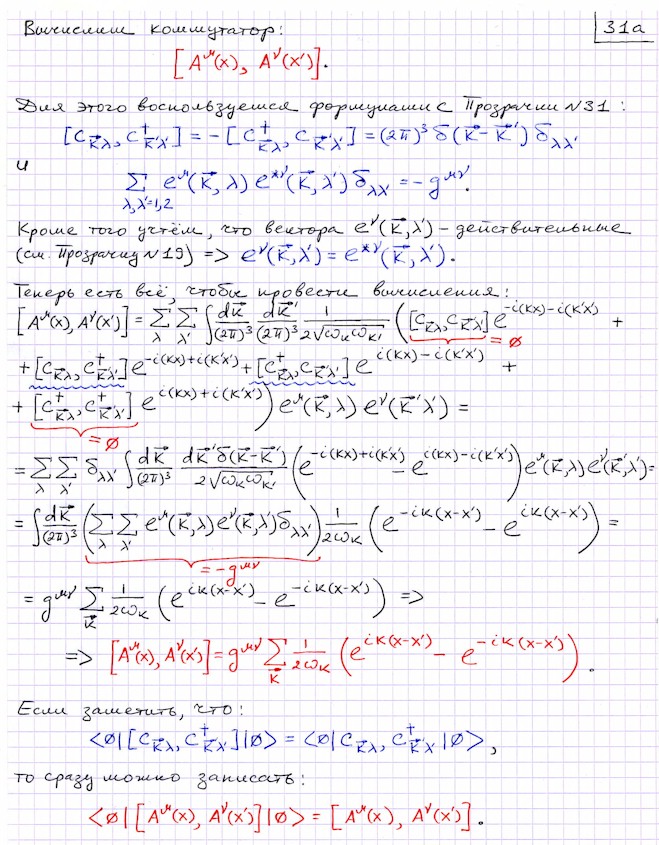 Вычислим коммутатор:
31а
[A^μ(x), A^ν(x′)].
Для этого воспользуемся формулами с Прозрачки №31:
[c_{k⃗λ}, c⁺_{k⃗′λ′}] = −[c⁺_{k⃗λ}, c_{k⃗′λ′}] = (2π)³ δ(k⃗−k⃗′) δ_{λλ′}
и
∑_{λ,λ′=1,2} e^μ(k⃗,λ) e^{*ν}(k⃗,λ′) δ_{λλ′} = −g^{μν}.
Кроме того учтём, что вектора e^ν(k⃗,λ′) – действительные
(см. Прозрачку №19) => e^ν(k⃗,λ′) = e^{*ν}(k⃗,λ′).
Теперь есть всё, чтобы провести вычисления:
[A^μ(x), A^ν(x′)] = ∑_λ ∑_{λ′} ∫ dk⃗/(2π)³ dk⃗′/(2π)³ 1/(2√(ω_k ω_{k′})) ([c_{k⃗λ}, c_{k⃗′λ′}] e^{−i(kx)−i(k′x′)} +
= ∅
+ [c_{k⃗λ}, c⁺_{k⃗′λ′}] e^{−i(kx)+i(k′x′)} + [c⁺_{k⃗λ}, c_{k⃗′λ′}] e^{i(kx)−i(k′x′)} +
+ [c⁺_{k⃗λ}, c⁺_{k⃗′λ′}] e^{i(kx)+i(k′x′)}) e^μ(k⃗,λ) e^ν(k⃗′λ′) =
= ∅
= ∑_λ ∑_{λ′} δ_{λλ′} ∫ dk⃗/(2π)³ dk⃗′δ(k⃗−k⃗′)/(2√(ω_k ω_{k′})) (e^{−i(kx)+i(k′x′)} − e^{i(kx)−i(k′x′)}) e^μ(k⃗,λ) e^ν(k⃗′,λ′) =
= ∫ dk⃗/(2π)³ (∑_λ ∑_{λ′} e^μ(k⃗,λ) e^ν(k⃗,λ′) δ_{λλ′}) 1/(2ω_k) (e^{−ik(x−x′)} − e^{ik(x−x′)}) =
= −g^{μν}
= g^{μν} ∑_{k⃗} 1/(2ω_k) (e^{ik(x−x′)} − e^{−ik(x−x′)}) =>
=> [A^μ(x), A^ν(x′)] = g^{μν} ∑_{k⃗} 1/(2ω_k) (e^{ik(x−x′)} − e^{−ik(x−x′)}).
Если заметить, что:
<∅|[c_{k⃗λ}, c⁺_{k⃗′λ′}]|∅> = <∅|c_{k⃗λ}, c⁺_{k⃗′λ′}|∅>,
то сразу можно записать:
<∅|[A^μ(x), A^ν(x′)]|∅> = [A^μ(x), A^ν(x′)].